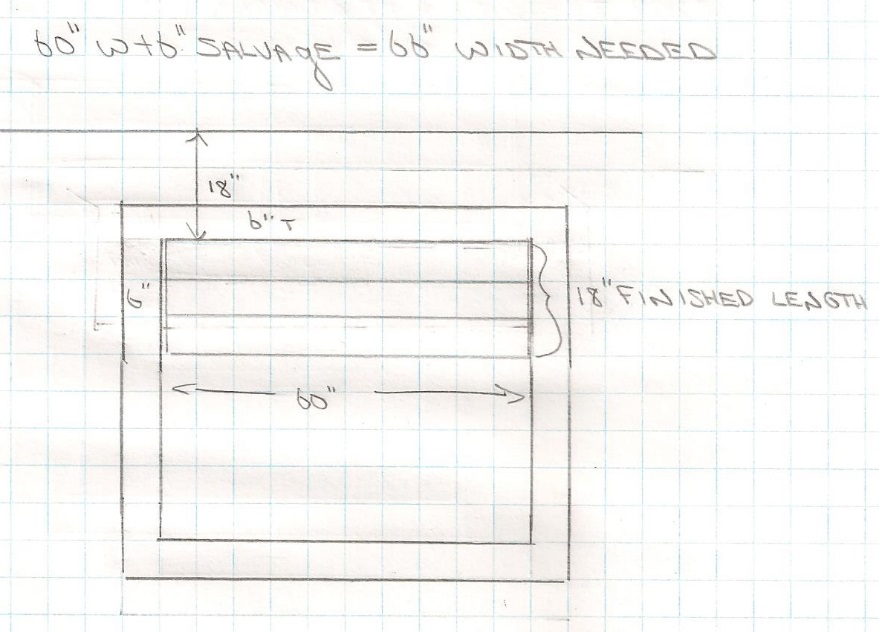 60" W + 6" SALVAGE = 66" WIDTH NEEDED
18"
6" T
6"
18" FINISHED LENGTH
60"